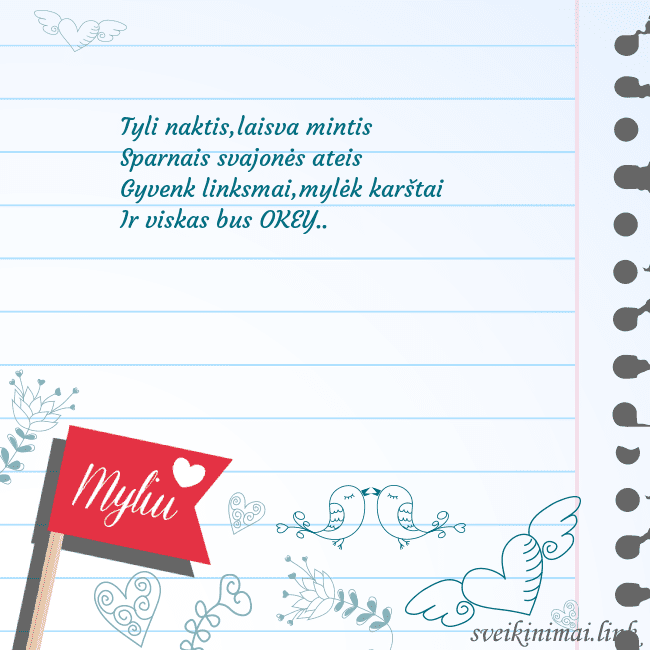 Tyli naktis,laisva mintis
Sparnais svajonės ateis
Gyvenk linksmai,mylėk karštai
Ir viskas bus OKEY..
Myliu
sveikinimai.link